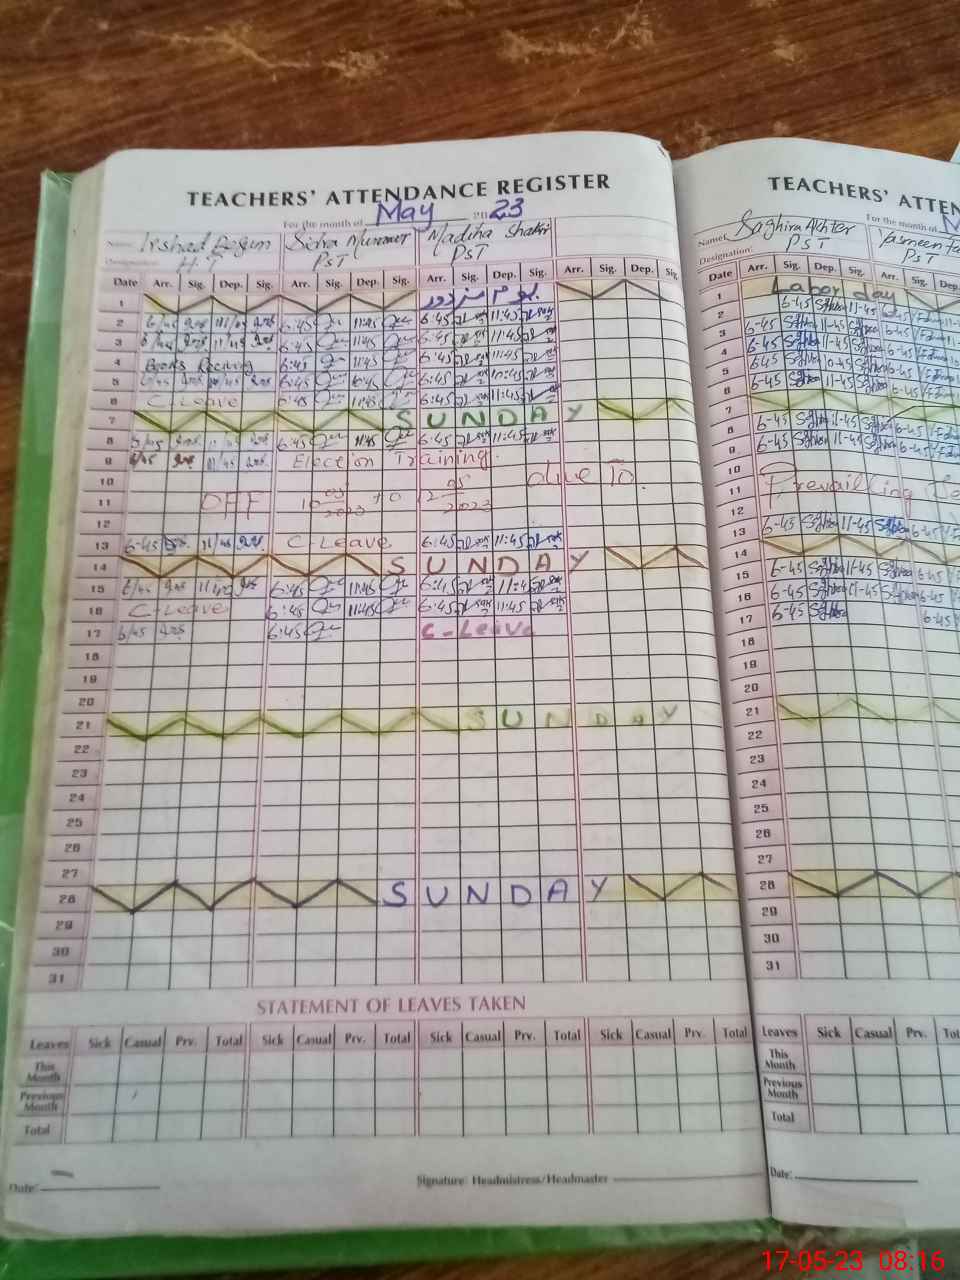 TEACHERS' ATTENDANCE REGISTER
For the month of May 2023
Name: Irshad Begum Sidra Munawar Madiha Shakir
Designation: H.T PST PST
Date Arr. Sig. Dep. Sig. Arr. Sig. Dep. Sig. Arr. Sig. Dep. Sig. Arr. Sig. Dep. Sig.
1 یوم مزدور
2 6/45 11/45 6:45 11:45 6:45 11:45
3 6/45 11/45 6:45 11:45 6:45 11:45
4 Books Receiving 6:45 11:45 6:45 11:45
5 6/45 10/45 6:45 10:45 6:45 10:45
6 C-Leave 6:45 11:45 6:45 11:45
7 SUNDAY
8 6/45 11/45 6:45 11:45 6:45 11:45
9 6/45 11/45 Election Training.
10 due To
11 OFF 10 05 2023 to 12 05 2023
12
13 6-45 11/45 C-Leave 6:45 11:45
14 SUNDAY
15 6/45 11/45 6:45 11:45 6:45 11:45
16 C-Leave 6:45 11:45 6:45 11:45
17 6/45 6:45 C-Leave
18
19
20
21 SUNDAY
22
23
24
25
26
27
28 SUNDAY
29
30
31
STATEMENT OF LEAVES TAKEN
Leaves Sick Casual Prv. Total Sick Casual Prv. Total Sick Casual Prv. Total Sick Casual Prv. Total
This Month
Previous Month
Total
Date:
Signature: Headmistress/Headmaster
TEACHERS' ATTEN
For the month of M
Name: Saghira Akhter Yasmeen
Designation: PST PST
Date Arr. Sig. Dep. Sig. Arr. Sig. Dep.
1 Labor day
2 6-45 11-45 6-45
3 6-45 11-45 6-45
4 6-45 11-45 6-45
5 6-45 10-45 6-45
6 6-45 11-45 6-45
7
8 6-45 11-45 6-45
9 6-45 11-45 6-45
10
11 Prevailling
12
13 6-45 11-45 6-45
14
15 6-45 11-45 6-45
16 6-45 11-45 6-45
17 6-45 6-45
18
19
20
21
22
23
24
25
26
27
28
29
30
31
Leaves Sick Casual Prv.
This Month
Previous Month
Total
Date:
17-05-23 08:16